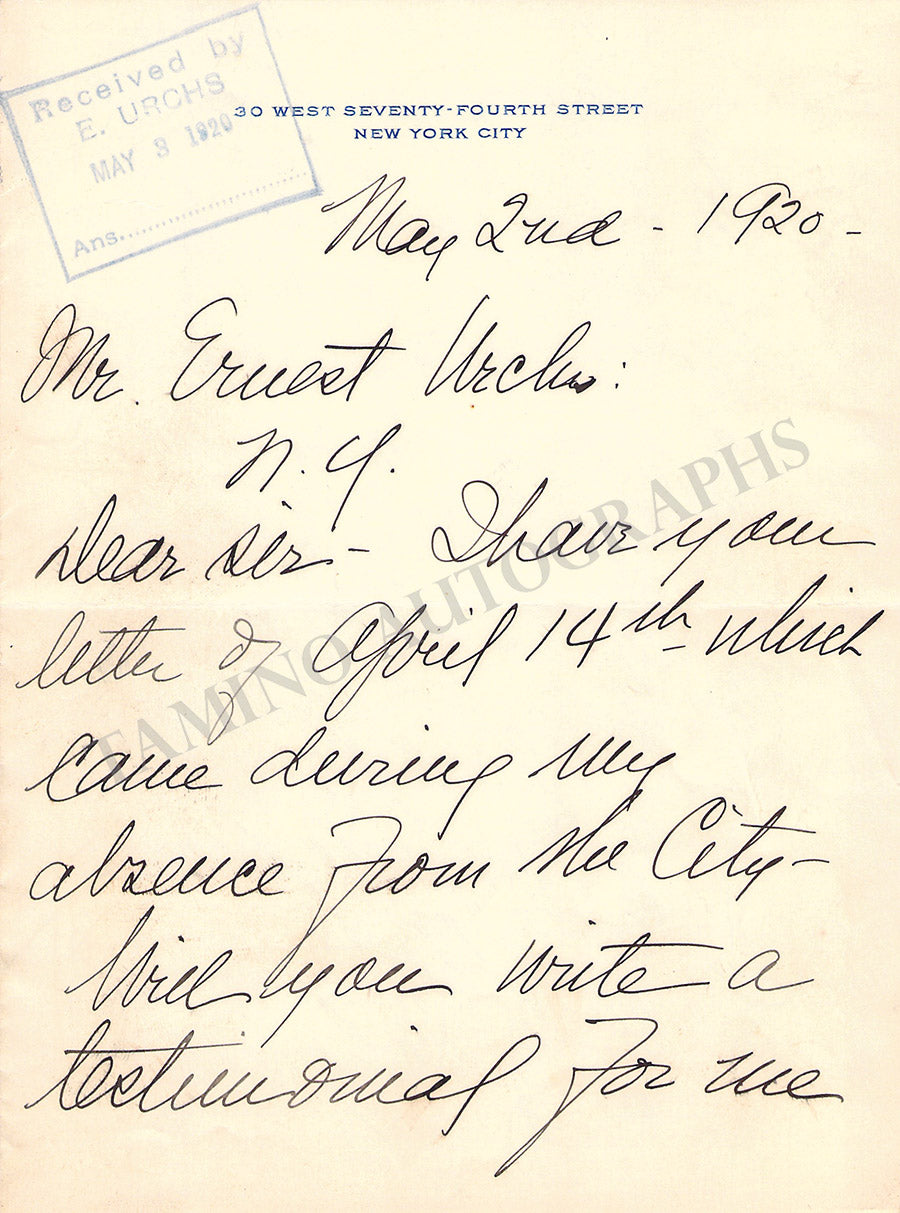 Received by
E. URCHS
MAY 3 1920
Ans.
30 WEST SEVENTY-FOURTH STREET
NEW YORK CITY
May 2nd - 1920 -
Mr. Ernest Urchs:
N. Y.
Dear Sir - I have your
letter of April 14th which
came during my
absence from the City -
Will you write a
testimonial for me
TAMINO AUTOGRAPHS